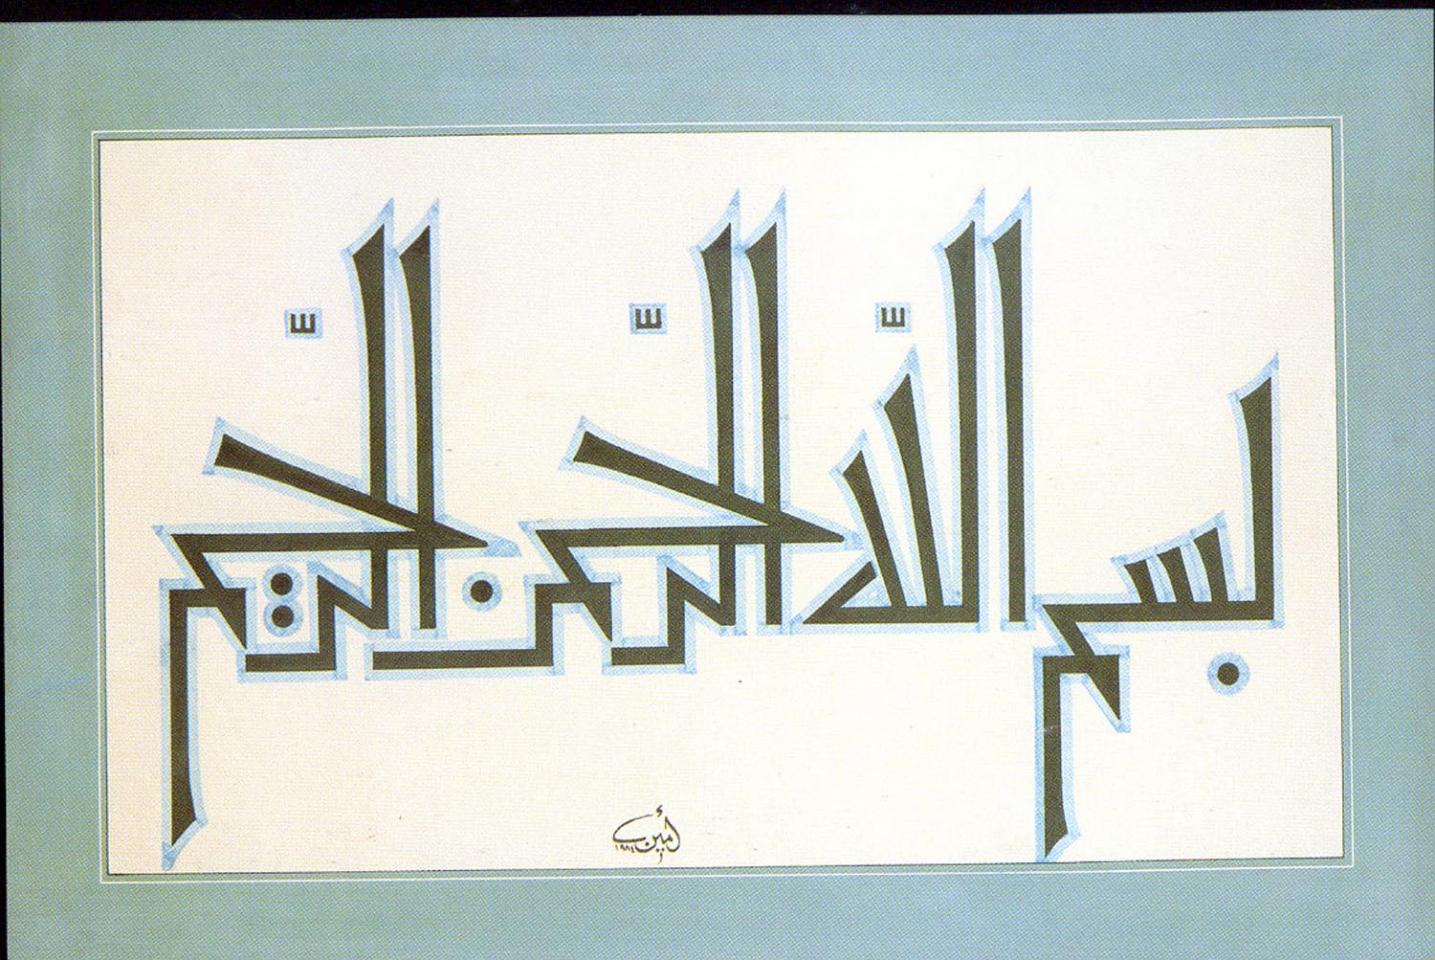 بسم الله الرحمن الرحيم
أمين
١٩٨٤